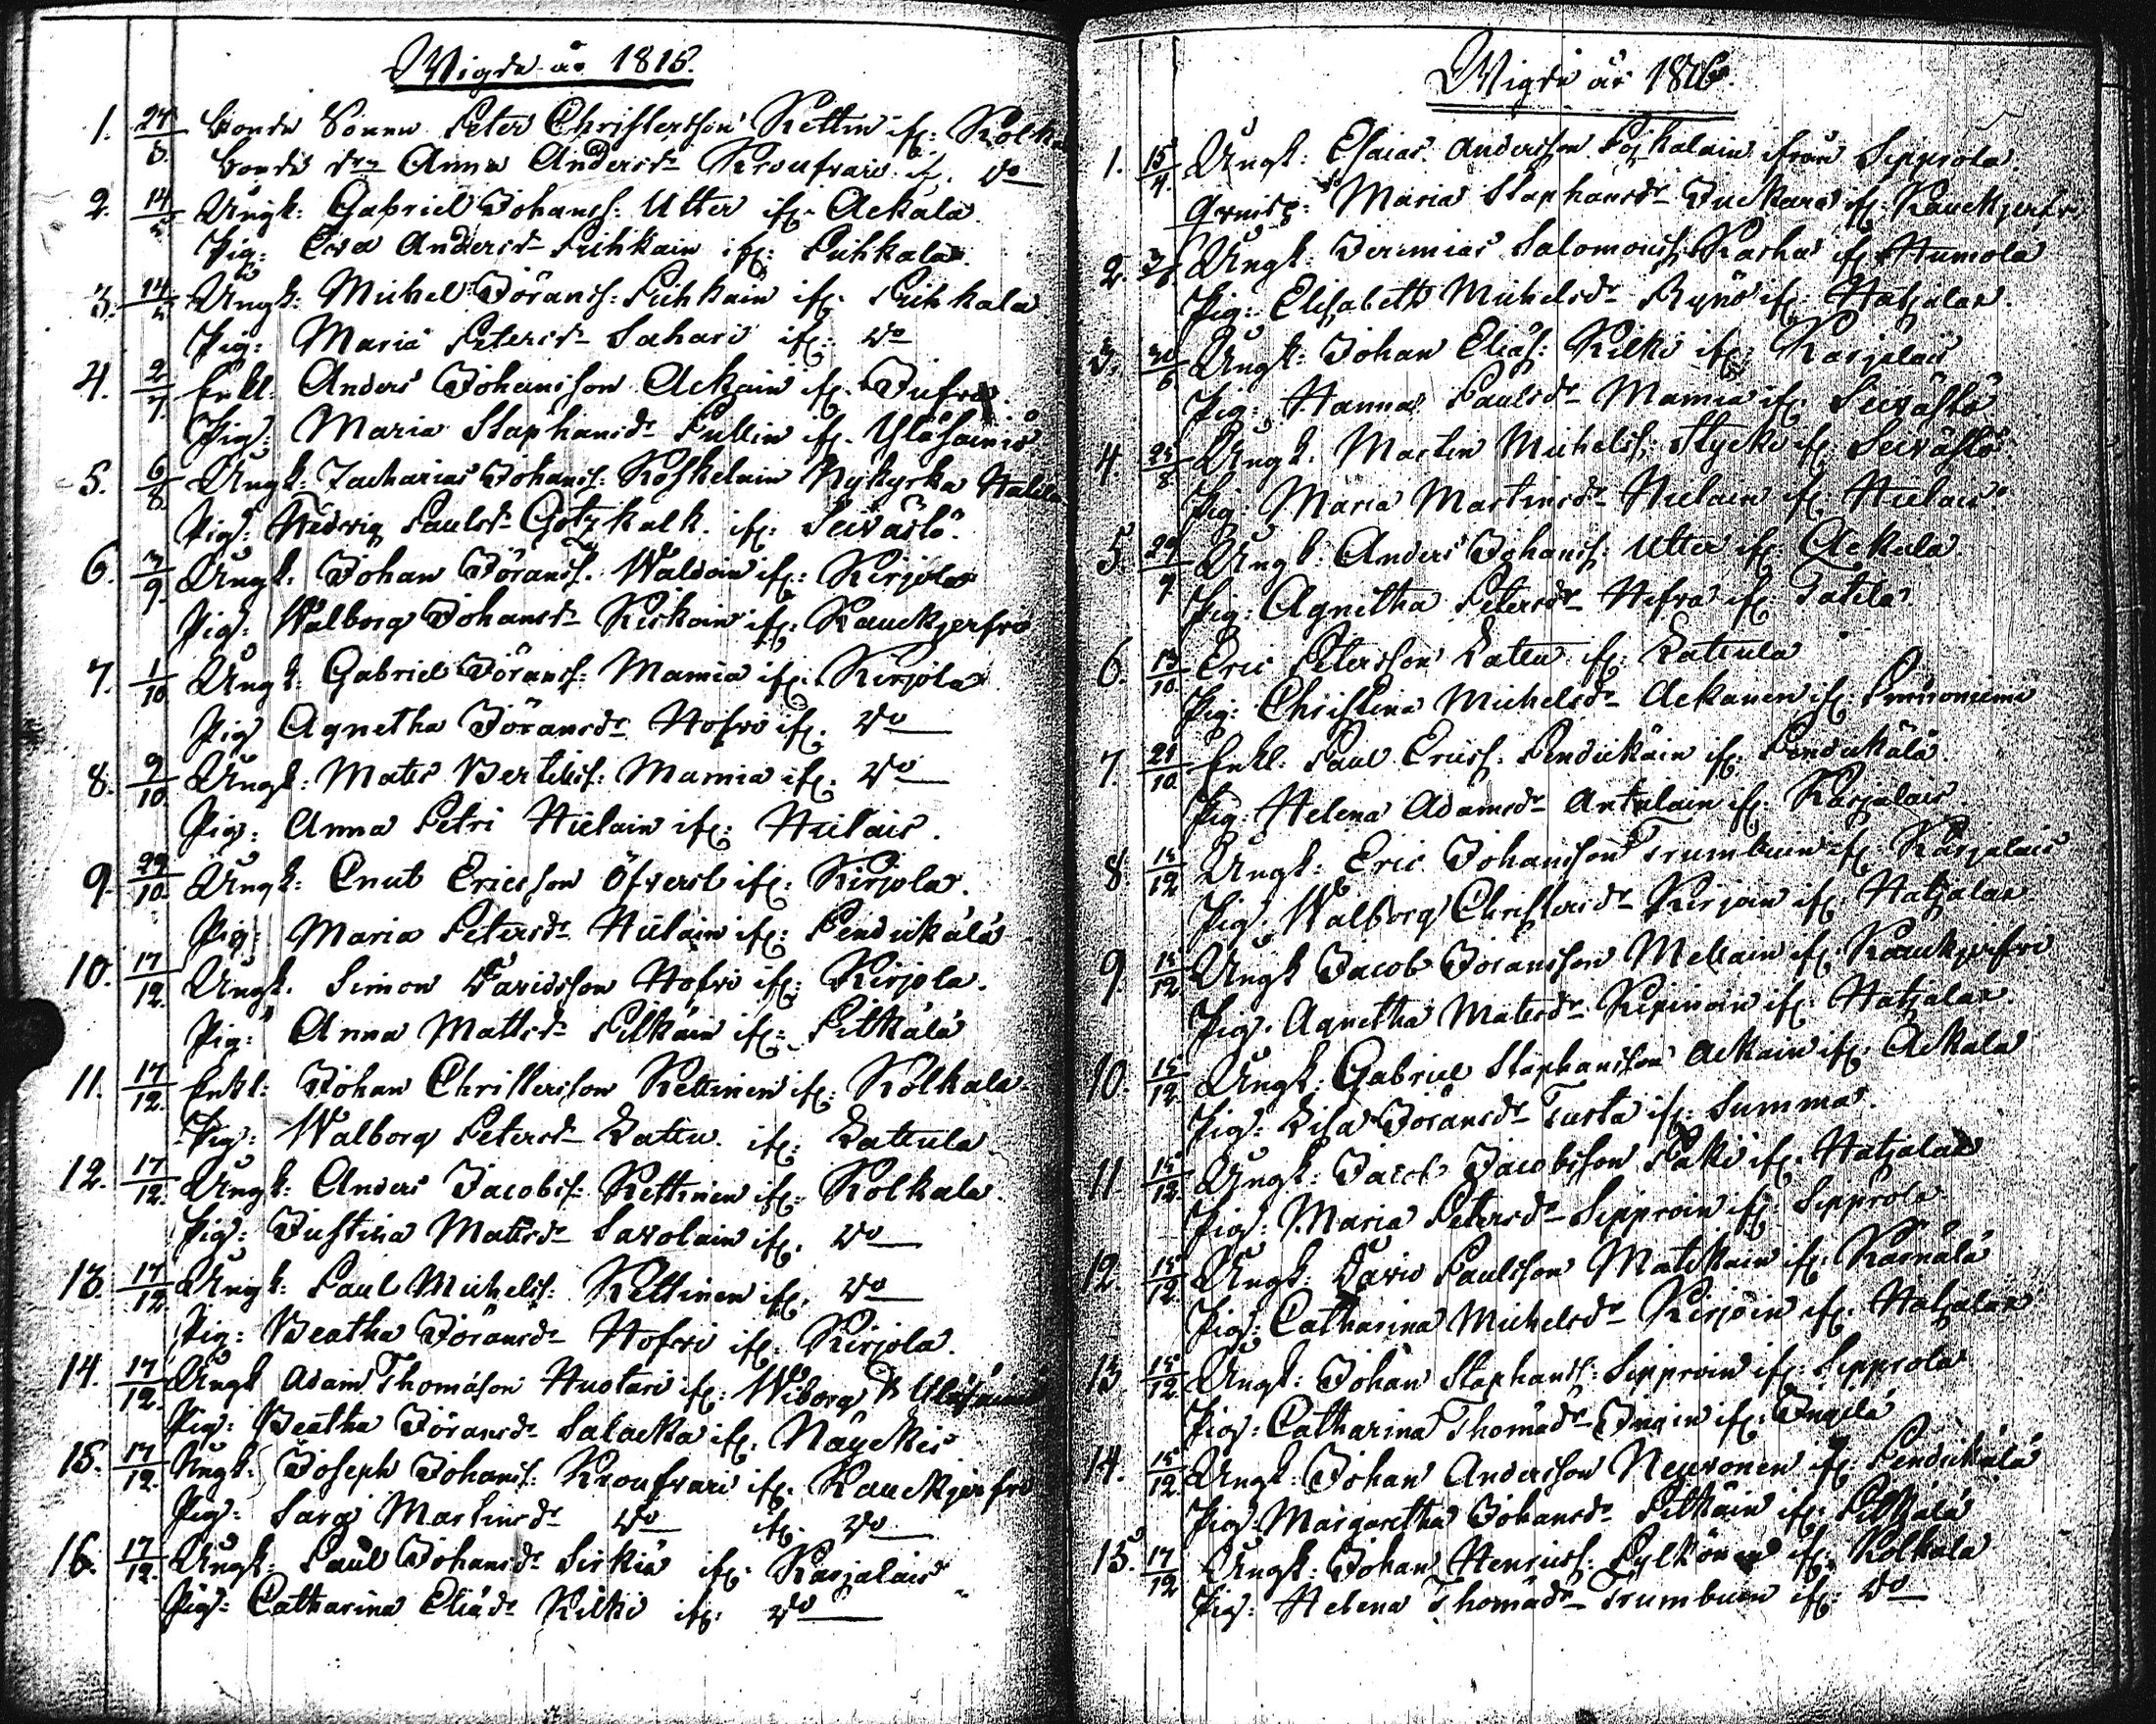 Wigde år 1815.
1. 24/3. Bonde Sonen Peter Christersson Kettin ifr: Kolka
Bonde dr Anna Andersdr Kroufvari ifr. do
2. 14/5 Ungk: Gabriel Johanss: Utter ifr. Ackala.
Pig: Eva Andersdr Puhkain ifr: Puhkala.
3. 14/5 Ungk: Michel Jöranss: Puhkain ifr. Puhkala
Pig: Maria Petersdr Sahari ifr: do
4. 2/7. Enkl. Anders Johansson Ackain ifr.
Pig: Maria Staphansdr Pullin ifr. Yläsainio
5. 6/8 Ungk: Zacharias Johanss: Koskelain Nykyrka
Pig: Hedvig Paulsdr Götzkalk. ifr: Seivästö.
6. 3/9. Ungk. Johan Jöranss. Waldain ifr: Kirjola
Pig: Walborg Johansdr Kiskoin ifr. Rauckjerfvi
7. 1/10 Ungk: Gabriel Jöranss: Mamia ifr. Kirjola
Pig Agnetha Jöransdr Hofvi ifr. do
8. 9/10. Ungk: Mats Bertilss: Mamia ifr. do
Pig: Anna Petri Hielain ifr: Hielais.
9. 29/10. Ungk: Cnut Ericsson Öfverst ifr: Kirjola.
Pig: Maria Petersdr Hielain ifr: Pendickälä
10. 17/12. Ungk. Simon Davidsson Hofvi ifr: Kirjola.
Pig: Anna Mattsdr Pitkäin ifr: Pitkälä
11. 17/12. Enkl: Johan Christersson Kettinen ifr: Kolkala.
Pig: Walborg Petersdr Latu. ifr: Latula
12. 17/12. Ungk: Anders Jacobss: Kettinen ifr: Kolkala.
Pig: Justina Matsdr Savolain ifr. do
13. 17/12. Ungk: Paul Michelss: Kettinen ifr. do
Pig: Beatha Jöransdr Hofvi ifr: Kirjola.
14. 17/12. Ungk Adam Thomasson Huotari ifr: Wiborg
Pig: Beatha Jöransdr Salacka ifr. Näyckis
15. 17/12. Ungk: Joseph Johanss: Kroufvari ifr. Rauckjerfvi
Pig: Sara Martinsdr do ifr. do
16. 17/12. Ungk: Paul Johansdr Sirkiä ifr. Karjalais
Pig: Catharina Eliädr Kilki ifr: do
Wigde år 1816.
1. 15/4. Ungk: Esaias Andersson Pojkalain ifrån Sipprola
Maria Staphansdr Juckara ifr. Rauckjerfvi
2. Ungk: Jeremias Salomonss: Karha ifr Humola
Pig: Elisabeth Michelsdr Rynö ifr: Hatjalax.
3. Ungk: Johan Eliäs: Kilki ifr: Karjalais
Pig: Hanna Paulsdr Mamia ifr. Seivästö
4. 25/8. Ungk. Martin Michelss: Stycki ifr Seivästö
Pig: Maria Martinsdr Hielain ifr. Hielais
5. 29/9 Ungk: Anders Johanss. Utter ifr: Ackala
Pig: Agnetha Petersdr Hofva ifr: Tatila.
6. 13/10. Eric Petersson Latu ifr: Latula
Pig: Christina Michelsdr Ackanen ifr:
7. 29/10. Enkl. Paul Ericss. Pendickäin ifr: Pendickälä
Pig: Helena Adamsdr Antulain ifr. Karjalais
8. 15/12 Ungk: Eric Johansson Trumbuin ifr: Karjalais
Pig: Walborg Christersdr Kirjoin ifr. Hatjalax
9. 15/12 Ungk Jacob Jöransson Mellain ifr. Rauckjerfvi
Pig: Agnetha Matsdr Kipinoin ifr: Hatjalax.
10. 15/12. Ungk: Gabriel Staphansson Ackain ifr: Ackala
Pig: Lisa Jöransdr Tusta ifr: Summa.
11. 15/12. Ungk: Jacob Jacobsson Paki ifr. Hatjalax
Pig: Maria Petersdr Sipproin ifr: Sipprola
12. 15/12 Ungk: David Paulsson Matikain ifr: Karnälä
Pig: Catharina Michelsdr Kirjoin ifr. Hatjalax
13 15/12 Ungk: Johan Staphanss: Sipproin ifr: Sipprola
Pig: Catharina Thomadr Ingin ifr: Ingilä
14. 15/12. Ungk: Johan Andersson Neuvonen ifr. Pendickälä
Pig: Margaretha Johansdr Pitkäin ifr. Pitkälä
15. 17/12 Ungk: Johan Henricss: Pylkönen ifr. Kolkala
Pig: Helena Thomadr Trumbuin ifr: do